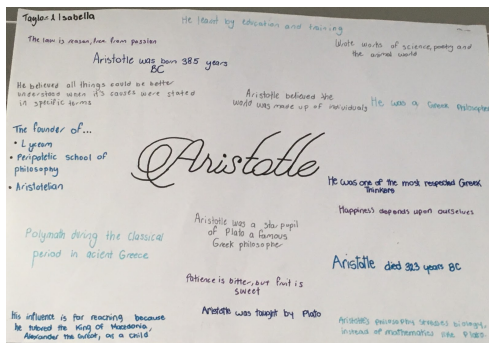 Taylor & Isabella
He learnt by education and training
The law is reason, free from passion
Wrote works of science, poetry and
the natural world
Aristotle was born 385 years
BC
He believed all things could be better
understood when it's causes were stated
in specific terms
Aristotle believed the
world was made up of individuals
He was a Greek Philosopher
The founder of...
• Lyceum
• Peripatetic school of
philosophy
• Aristotelian
Aristotle
He was one of the most respected Greek
Thinkers
Happiness depends upon ourselves
Aristotle was a star pupil
of Plato a famous
Greek philosopher
Polymath during the Classical
period in acient Greece
Aristotle died 323 years BC
Patience is bitter, but fruit is
sweet
His influence is far reaching because
he tutored the King of Macedonia,
Alexander the Great, as a child
Aristotle was taught by Plato
Aristotle's philosophy stresses biology,
instead of mathematics like Plato.